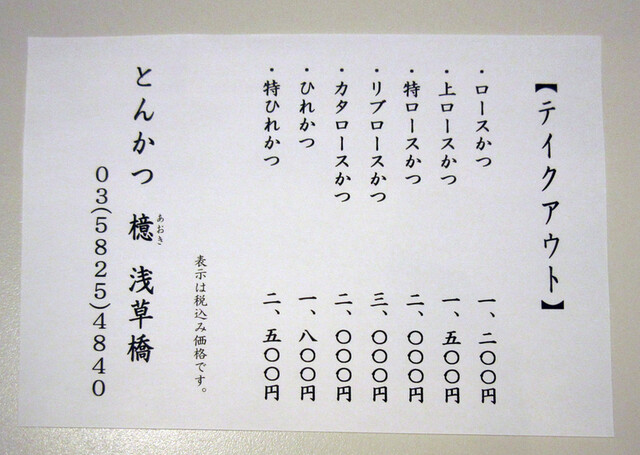 【テイクアウト】
・ロースかつ 一、二〇〇円
・上ロースかつ 一、五〇〇円
・特ロースかつ 二、〇〇〇円
・リブロースかつ 三、〇〇〇円
・カタロースかつ 二、〇〇〇円
・ひれかつ 一、八〇〇円
・特ひれかつ 二、五〇〇円
表示は税込み価格です。
あおき
とんかつ 檍 浅草橋
03(5825)4840